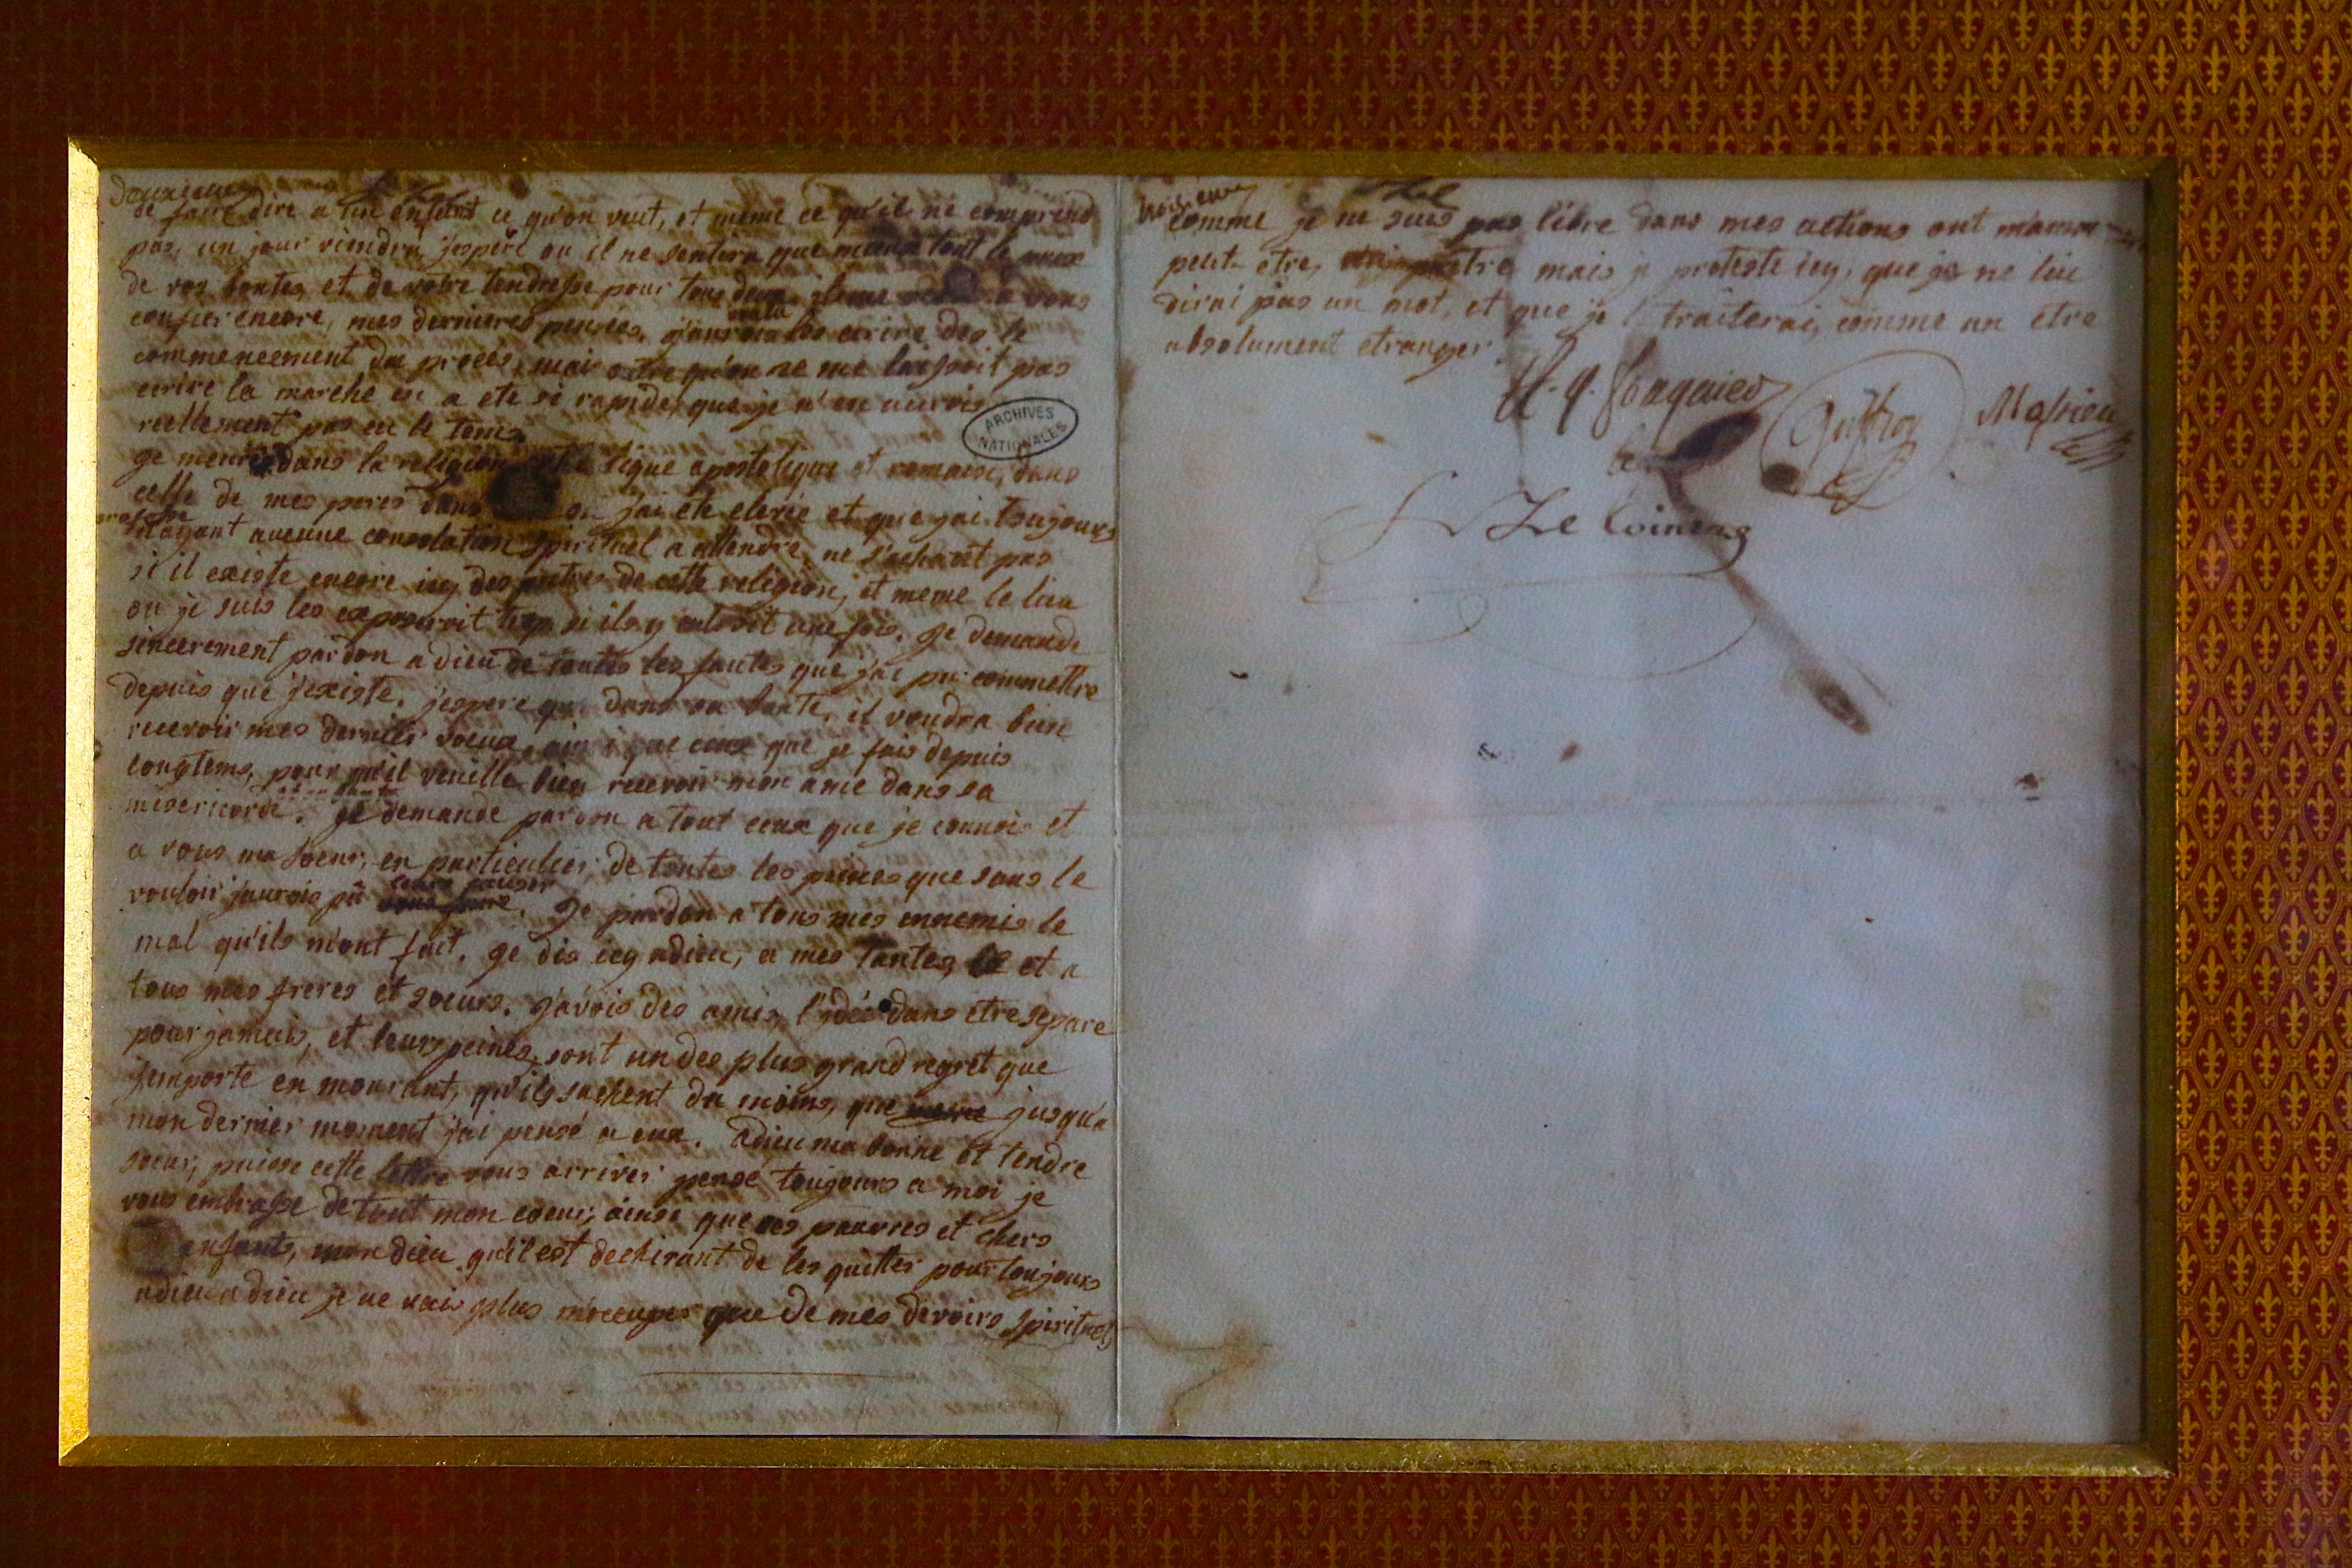 deuxieme
de faire dire a un enfant ce qu'on veut, et même ce qu'il ne comprend
pas, un jour viendra, j'espere ou il ne sentira que mieux tout le prix
de vos bontes et de votre tendresse pour tous deux. il me reste a vous
confier encore, mes dernieres pensées, j'aurois voulu les ecrire des le
commencement du procès, mais outre qu'on ne me laissoit pas
ecrire la marche en a ete si rapide, que je n'en aurois
reellement pas eu le tems.
ARCHIVES
NATIONALES
je meurs dans la religion catholique apostolique et romaine, dans
celle de mes peres dans ou j'ai été elevée et que j'ai toujours
professée
n'ayant aucune consolation spirituel a attendre, ne sachant pas
si il existe encore icy des pretres de cette religion, et meme le lieu
ou je suis les exposeroit trop si ils y entroit une fois. je demande
sincerement pardon a dieu de toutes les fautes que j'ai pu commettre
depuis que j'existe. j'espere que dans sa bonté, il voudra bien
recevoir mes derniers voeux, ainsi que ceux que je fais depuis
longtems, pour qu'il veuille bien recevoir mon ame dans sa
misericorde. je demande pardon a tout ceux que je connois et
a vous ma soeur, en particulier, de toutes les peines que sans le
vouloir j'aurois pû leurs causer. je pardon a tous mes ennemis le
mal qu'ils m'ont fait. je dis icy adieu, a mes tantes, et a
tous mes freres et soeurs. j'avois des amis, l'idée dans etre separé
pour jamais, et leurs peines, sont un des plus grand regret que
j'emporte en mourant, qu'ils sachent du moins, que jusqu'a
mon dernier moment j'ai pensé a eux. adieu ma bonne et tendre
soeur, puisse cette lettre vous arriver pensé toujours a moi je
vous embrasse de tout mon coeur, ainsi que ces pauvres et chers
enfants, mon dieu qu'il est dechirant de les quitter pour toujours
adieu adieu je ne vais plus m'occuper que de mes devoirs spirituels
troisieme
comme je ne suis pas libre dans mes actions ont m'amm
peut etre, un pretre mais je proteste icy, que je ne lui
dirai pas un mot, et que je le traiterai, comme un etre
absolument etranger.
A. q. fouquier
Guffroy
Massieu
Le cointre